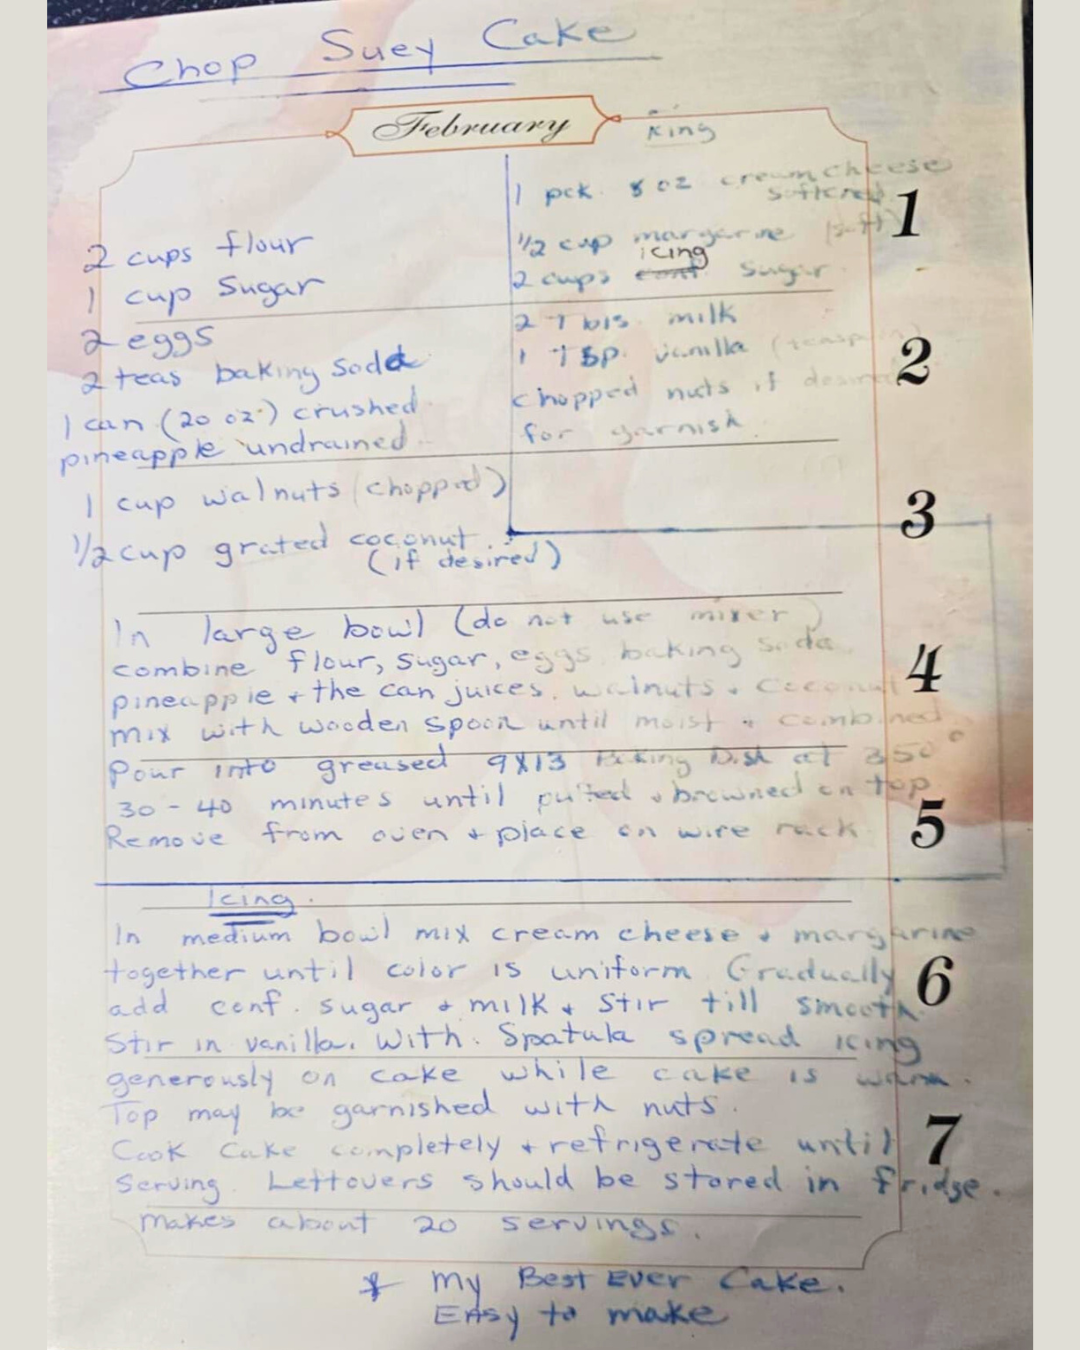 Chop Suey Cake
February
2 cups flour
1 cup Sugar
2 eggs
2 teas baking soda
1 can (20 oz.) crushed
pineapple undrained
1 cup walnuts (chopped)
1/2 cup grated coconut
(if desired)
Icing
1 pck. 8 oz cream cheese
softened
1/2 cup margarine (soft)
icing
2 cups conf sugar
2 Tbls. milk
1 Tsp. vanilla
chopped nuts if desired
for garnish
1
2
3
In large bowl (do not use mixer)
combine flour, sugar, eggs, baking soda
pineapple + the can juices, walnuts + coconut
mix with wooden spoon until moist + combined
4
Pour into greased 9X13 Baking Dish at 350°
30 - 40 minutes until puffed + browned on top
Remove from oven + place on wire rack
5
Icing.
In medium bowl mix cream cheese + margarine
together until color is uniform. Gradually
add conf. sugar + milk + stir till smooth.
6
Stir in vanilla. With. Spatula spread icing
generously on cake while cake is warm.
Top may be garnished with nuts.
Cook Cake completely + refrigerate until
7
Serving. Leftovers should be stored in fridge.
makes about 20 servings.
* My Best Ever Cake.
Easy to make